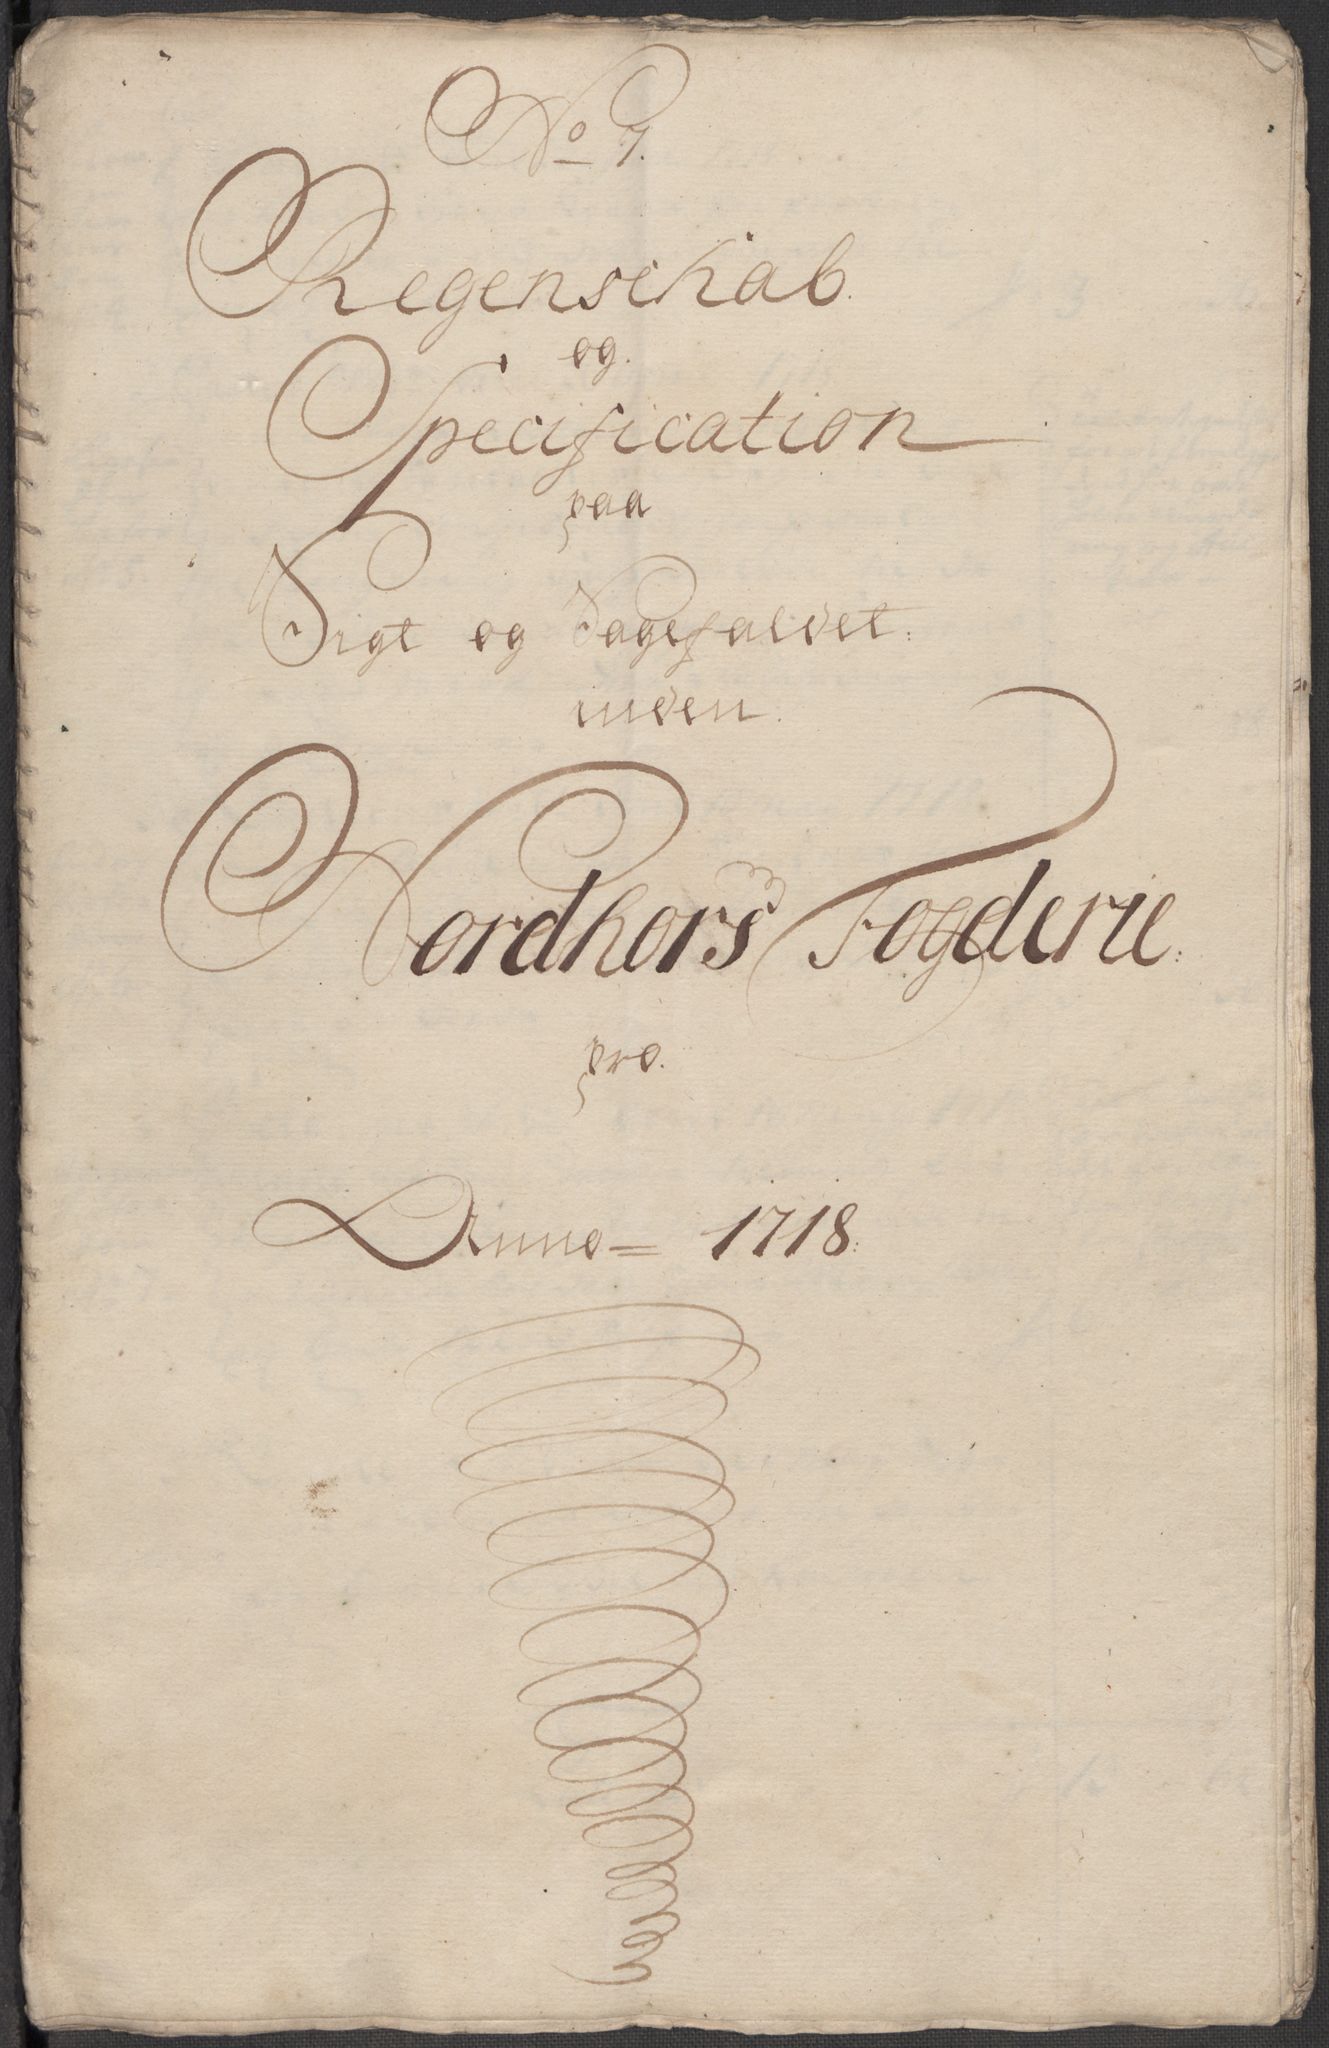 No 7.
Regenskab
og
Specification
paa
Sigt og Sagefaldet
inden
Nordhors Fogderie
pro
Anno 1718